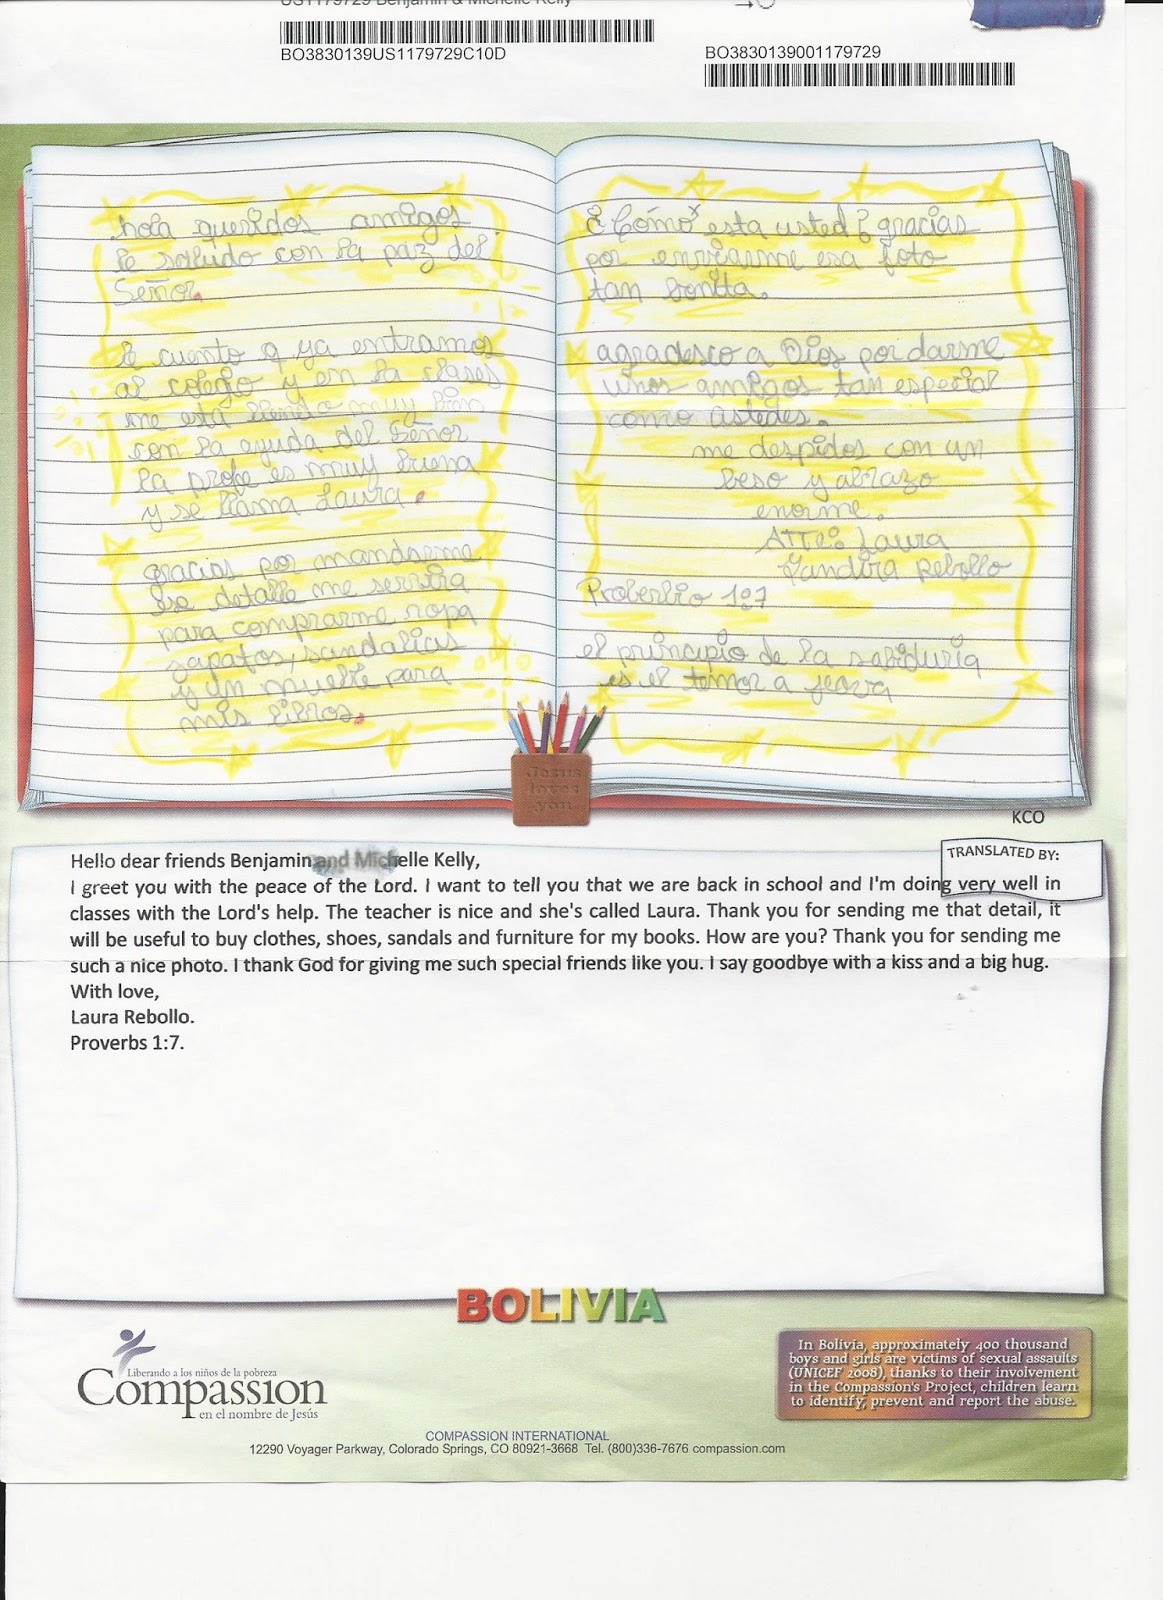 US1179729 Benjamin & Michelle Kelly
BO3830139US1179729C10D
BO3830139001179729
hola queridos amigos
le saludo con la paz del
Señor.
le cuento q ya entramos
al colegio y en la clases
me esta llendo muy bien
con la ayuda del Señor
la profe es muy buena
y se llama Laura.
gracias por mandarme
ese detalle me servira
para comprarme ropa
zapatos, sandalias
y un mueble para
mis libros.
¿Cómo esta usted? gracias
por enviarme esa foto
tan bonita.
agradesco a Dios por darme
unos amigos tan especial
como ustedes.
me despidos con un
beso y abrazo
enorme.
ATTE: Laura
Yandira Rebollo
Proberbio 1:7
el principio de la sabiduria
es el temor a
Jesus
loves
you
KCO
TRANSLATED BY:
Hello dear friends Benjamin and Michelle Kelly,
I greet you with the peace of the Lord. I want to tell you that we are back in school and I'm doing very well in
classes with the Lord's help. The teacher is nice and she's called Laura. Thank you for sending me that detail, it
will be useful to buy clothes, shoes, sandals and furniture for my books. How are you? Thank you for sending me
such a nice photo. I thank God for giving me such special friends like you. I say goodbye with a kiss and a big hug.
With love,
Laura Rebollo.
Proverbs 1:7.
BOLIVIA
Liberando a los niños de la pobreza
Compassion
en el nombre de Jesús
In Bolivia, approximately 400 thousand
boys and girls are victims of sexual assaults
(UNICEF 2008), thanks to their involvement
in the Compassion's Project, children learn
to identify, prevent and report the abuse.
COMPASSION INTERNATIONAL
12290 Voyager Parkway, Colorado Springs, CO 80921-3668 Tel. (800)336-7676 compassion.com